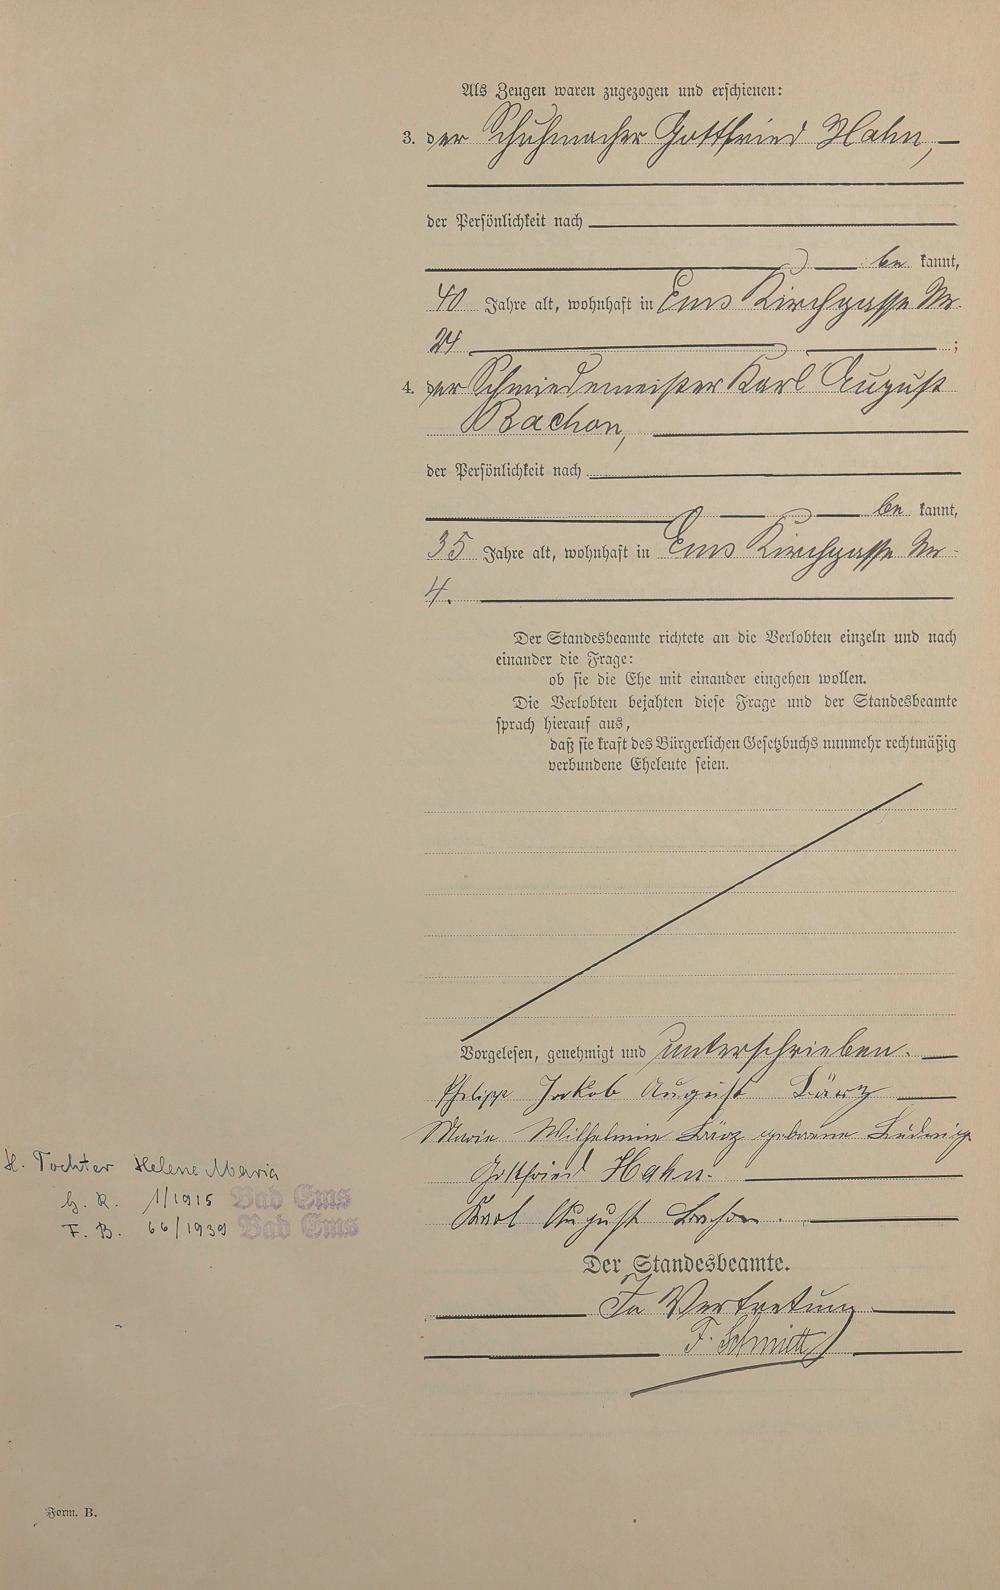 Als Zeugen waren zugezogen und erschienen:
3. der Schuhmacher Gottfried Hahn,
der Persönlichkeit nach
be kannt,
40 Jahre alt, wohnhaft in Ems Kirchgasse Nr.
24 ;
4. der Schmiedemeister Karl August
Bachon,
der Persönlichkeit nach
be kannt,
35 Jahre alt, wohnhaft in Ems Kirchgasse Nr.
4.
Der Standesbeamte richtete an die Verlobten einzeln und nach
einander die Frage:
ob sie die Ehe mit einander eingehen wollen.
Die Verlobten bejahten diese Frage und der Standesbeamte
sprach hierauf aus,
daß sie kraft des Bürgerlichen Gesetzbuchs nunmehr rechtmäßig
verbundene Eheleute seien.
Vorgelesen, genehmigt und unterschrieben.
Philipp Jakob August Lärz
Marie Wilhelmine Lärz geborene Ludwig
Gottfried Hahn.
Karl August Bachon.
Der Standesbeamte.
In Vertretung
F. Schmitt
H. Tochter Helene Maria
G. R. 1/1915 Bad Ems
F. B. 66/1939 Bad Ems
Form. B.